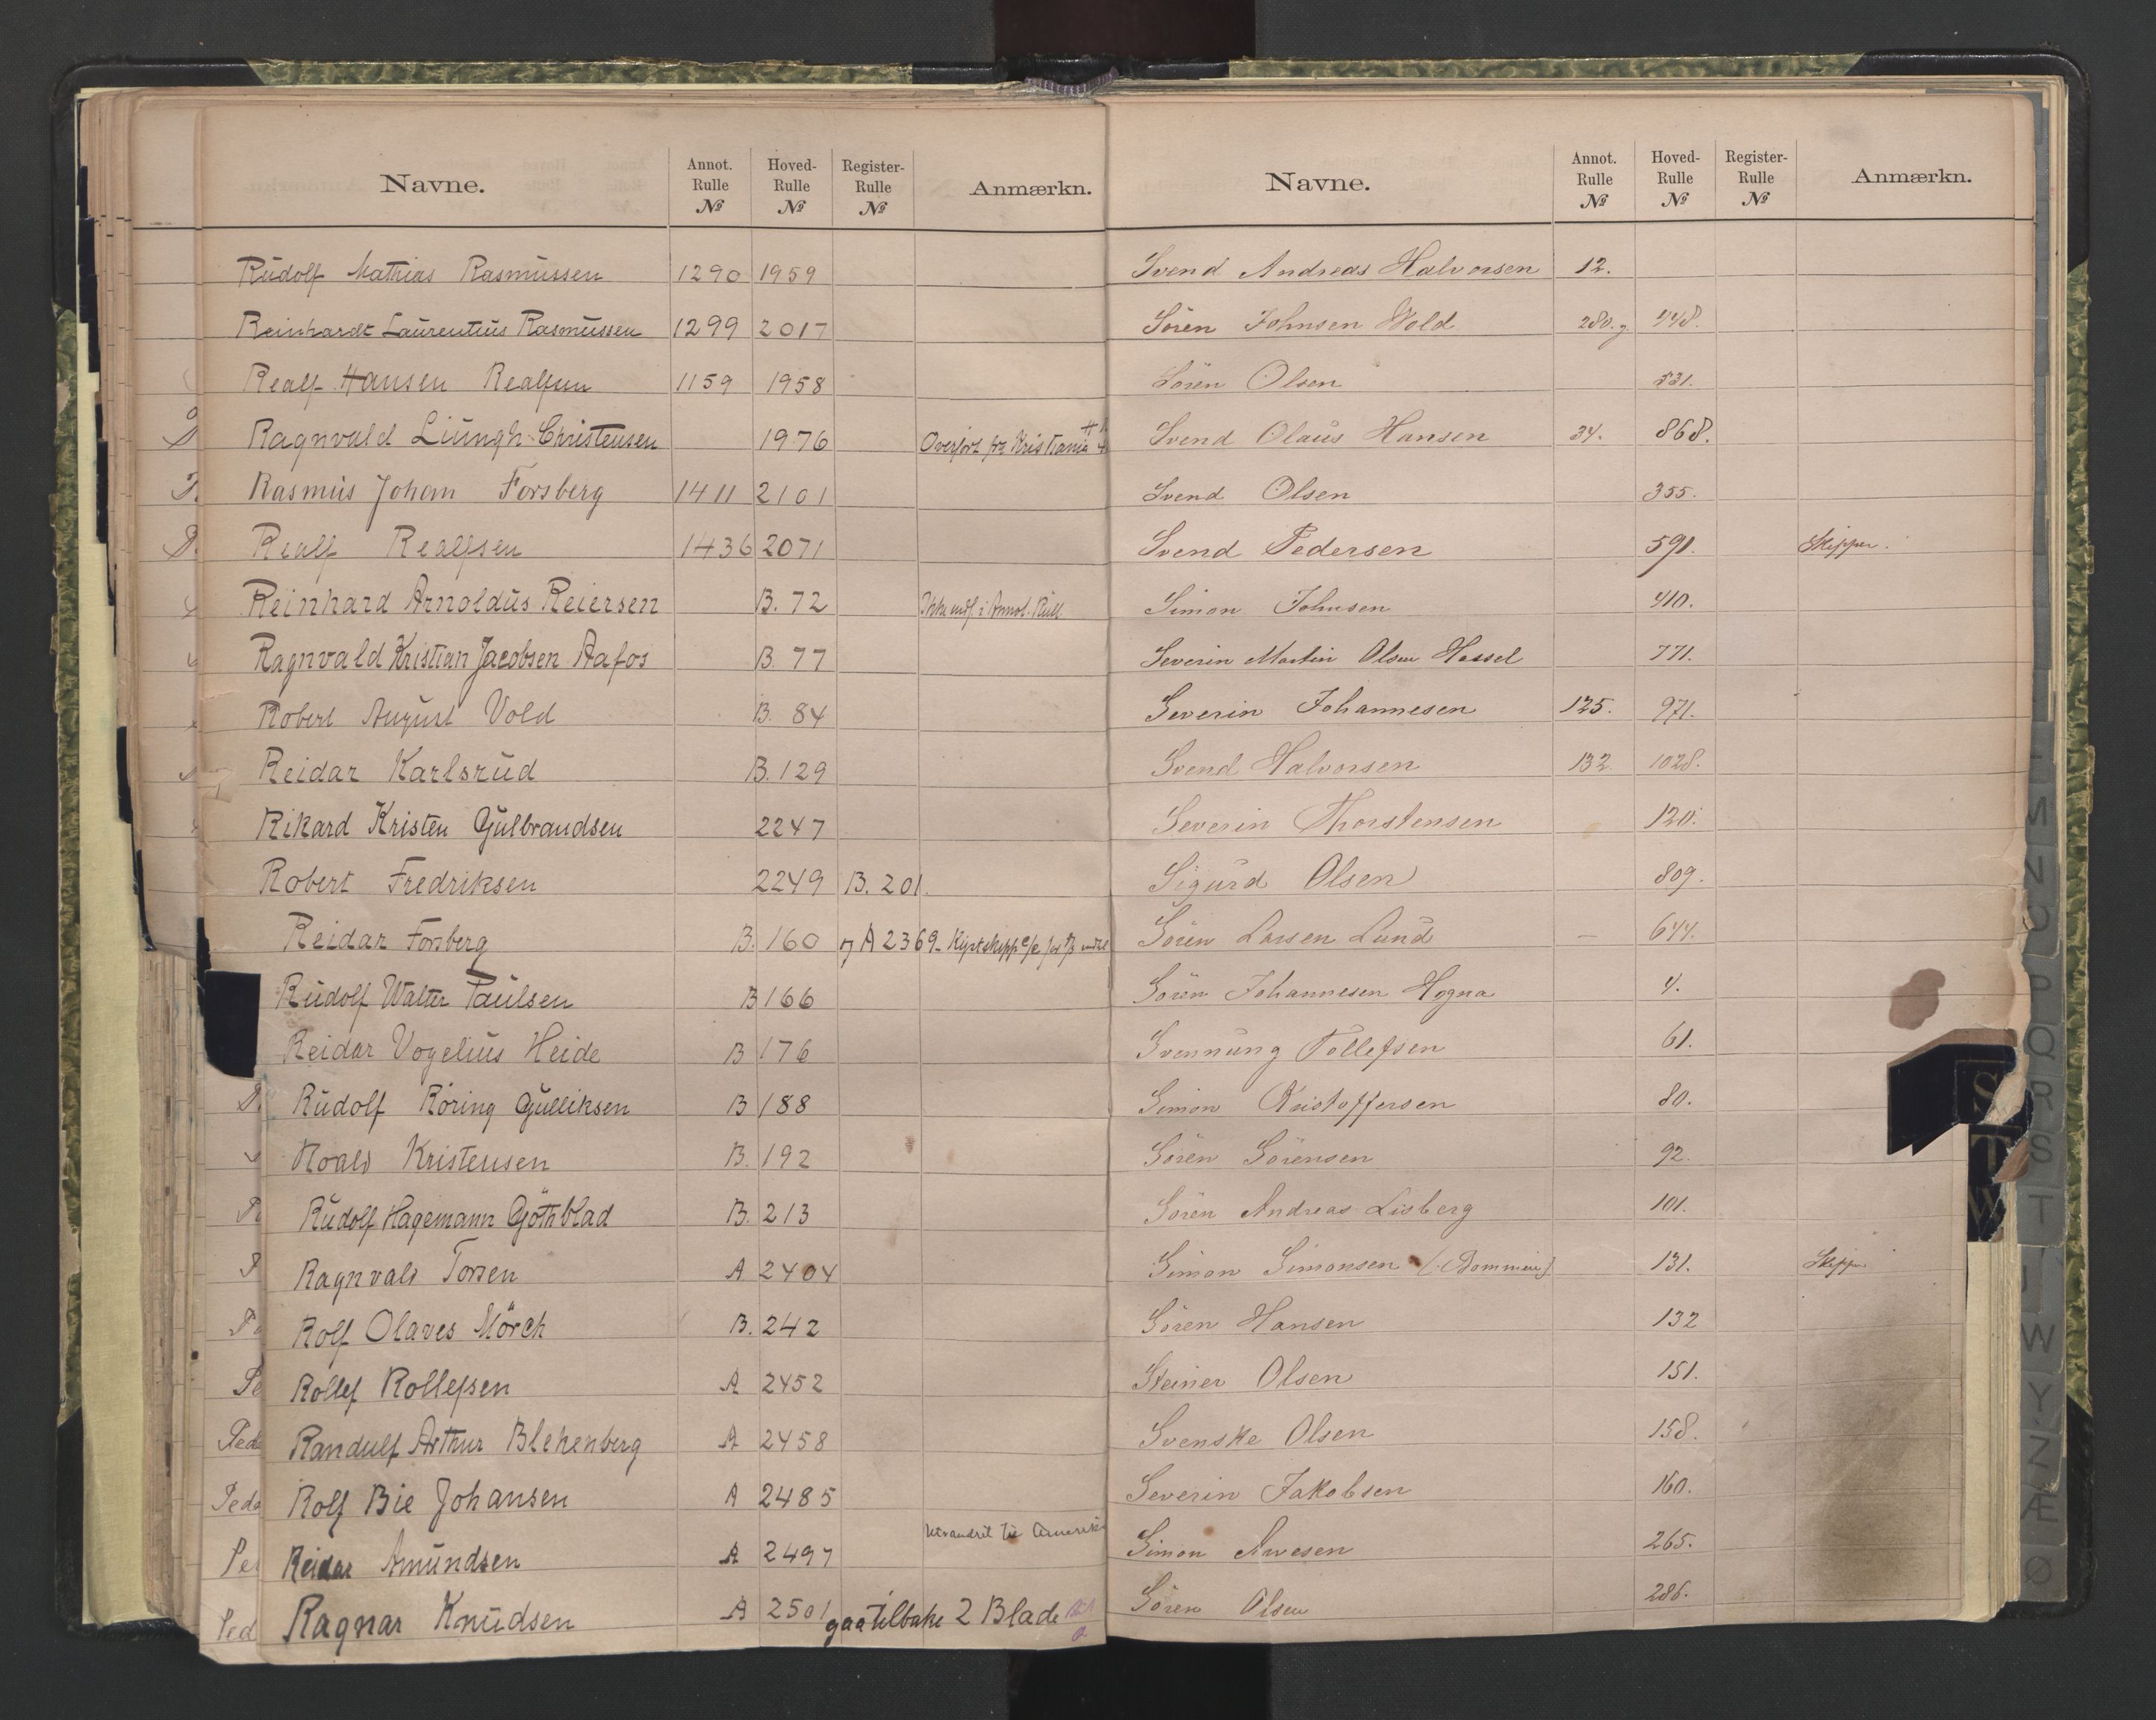 Navne. Annot. Rulle № Hoved- Rulle № Register- Rulle № Anmærkn.
Rudolf Mathias Rasmussen 1290 1959
Reinhardt Laurentius Rasmussen 1299 2017
Realf Hansen Realfsen 1159 1958
Ragnvald Liungh Christensen 1976 Overført fra Kristiania
Rasmus Johan Forsberg 1411 2101
Realf Realfsen 1436 2071
Reinhard Arnoldus Reiersen B. 72 Ikke indf. i Annot. Rull.
Ragnvald Kristian Jacobsen Aafos B. 77
Robert August Vold B. 84
Reidar Karlsrud B. 129
Rikard Kristen Gulbrandsen 2247
Robert Fredriksen 2249 B. 201.
Reidar Forsberg B. 160 A 2369
Rudolf Walter Paulsen B 166
Reidar Vogelius Heide B 176
Rudolf Röring Gulliksen B 188
Roald Kristensen B. 192
Rudolf Hagemann Göthblad B. 213
Ragnvald Torsen A 2404
Rolf Olaves Mörch B. 242
Rollef Rollefsen A 2452
Randulf Arthur Blekenberg A 2458
Rolf Bie Johansen A 2485
Reidar Amundsen A 2497 til Amerika
Ragnar Knudsen A 2501 gaa tilbake 2 Blade
Navne. Annot. Rulle № Hoved- Rulle № Register- Rulle № Anmærkn.
Svend Andreas Halvorsen 12.
Sören Johnsen Wold 280. 448.
Sören Olsen 531.
Svend Olaus Hansen 34. 868.
Svend Olsen 355.
Svend Pedersen 591. Skipper.
Simon Johnsen 410.
Severin Martin Olsen Hassel 771.
Severin Johannesen 125. 971.
Svend Halvorsen 132. 1028.
Severin Thorstensen 120.
Sigurd Olsen 809.
Sören Larsen Lund — 644.
Sören Johannesen Hogna 4.
Svennung Tollefsen 61.
Simon Kristoffersen 80.
Sören Sörensen 92.
Sören Andreas Lisberg 101.
Simon Simonsen 131. Skipper
Sören Hansen 132
Steiner Olsen 151.
Svenske Olsen 158.
Severin Jakobsen 160.
Simon Arvesen 265.
Sören Olsen 286.
M
N
O
P
Q
R
S
T
U
W
Y
Z
Æ
Ø
S
T
W